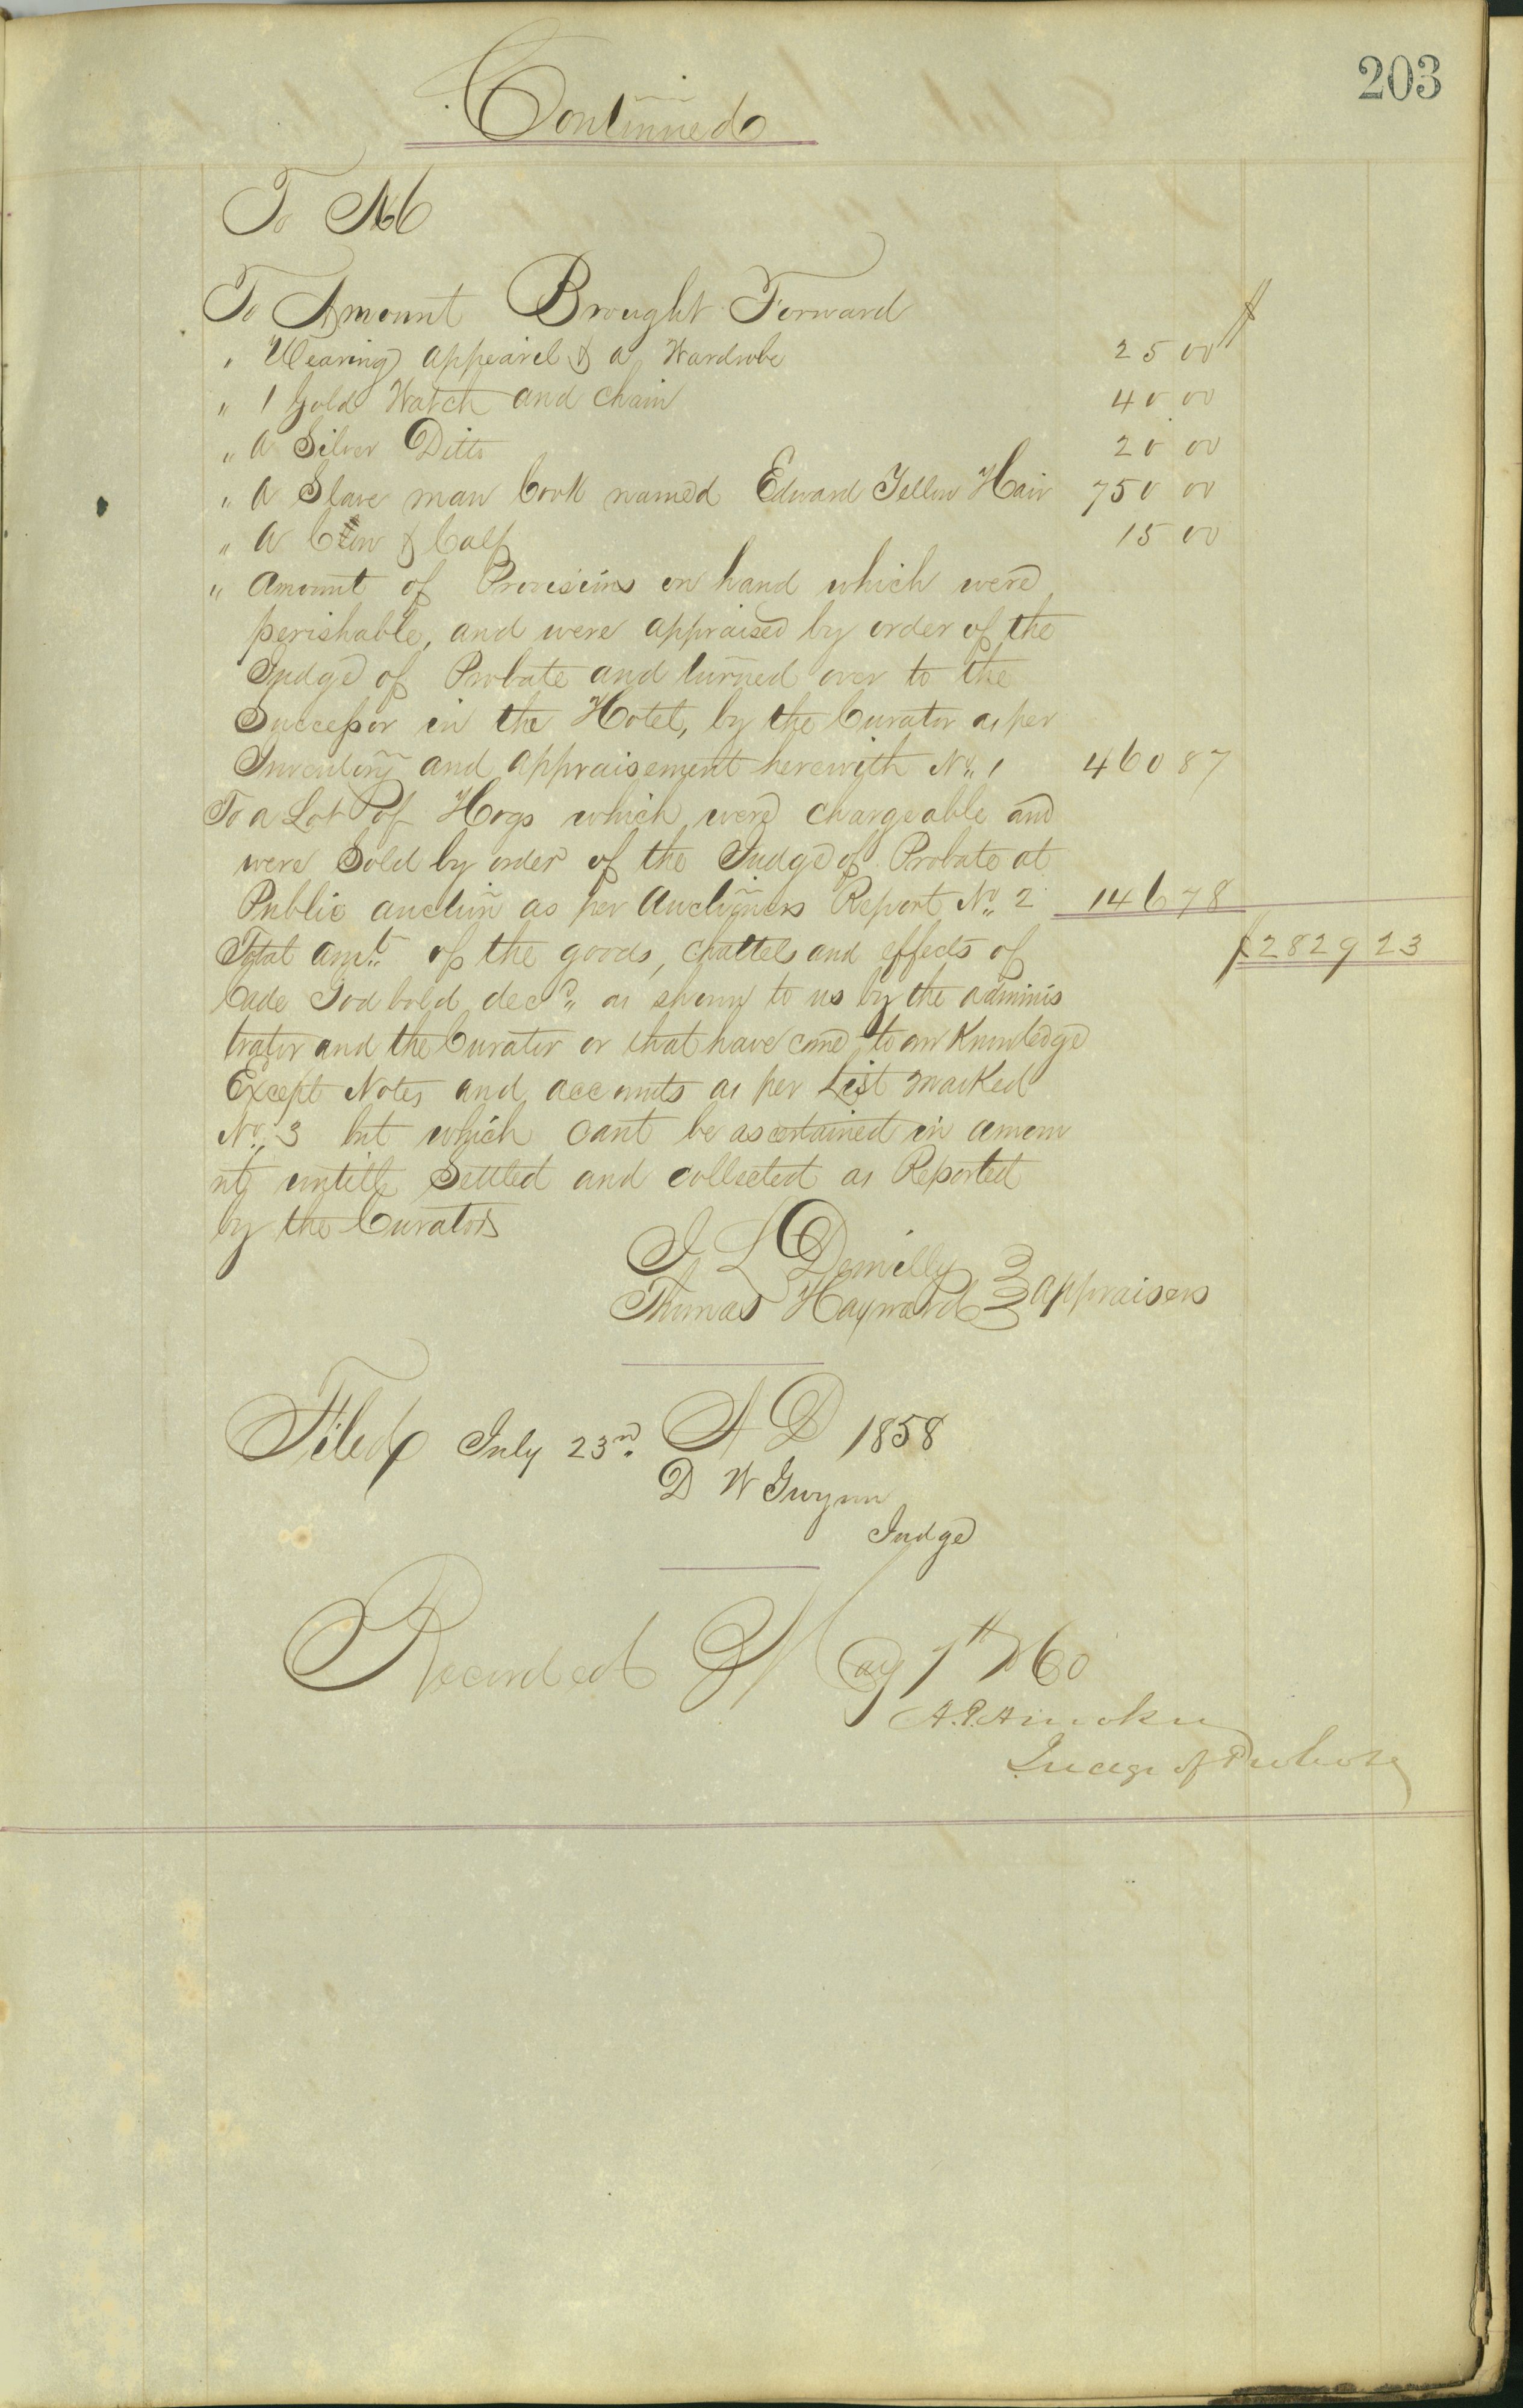 203
Continued
To
To Amount Brought Forward $
" Wearing appearel & a Wardrobe 25 00
" 1 Gold Watch and chain 40 00
" a Silver Ditto 20 00
" a Slave man Cook named Edward Yellow Hair 750 00
" a Cow & Calf 15 00
" Amount of Provisions on hand which were
perishable, and were appraised by order of the
Judge of Probate and turned over to the
Successor in the Hotel, by the Curator as per
Inventory and appraisement herewith No. 1 460 87
To a Lot of Hogs which were chargeable and
were Sold by order of the Judge of Probate at
Public auction as per Auctioners Report No. 2 146 78
Total amt. of the goods, chattels and effects of $2829 23
Cade Godbold decd. as shown to us by the adminis
trator and the Curator or that have come to our Knowledge
Except Notes and accounts as per List marked
No. 3 but which cant be ascertained in amou
nt untill Settled and collected as Reported
by the Curators
J L Demilly
Thomas Hayward } appraisers
Filed July 23rd. A D 1858
D W Gwynn
Judge
Recorded May 7th 1860
Judge of Probate